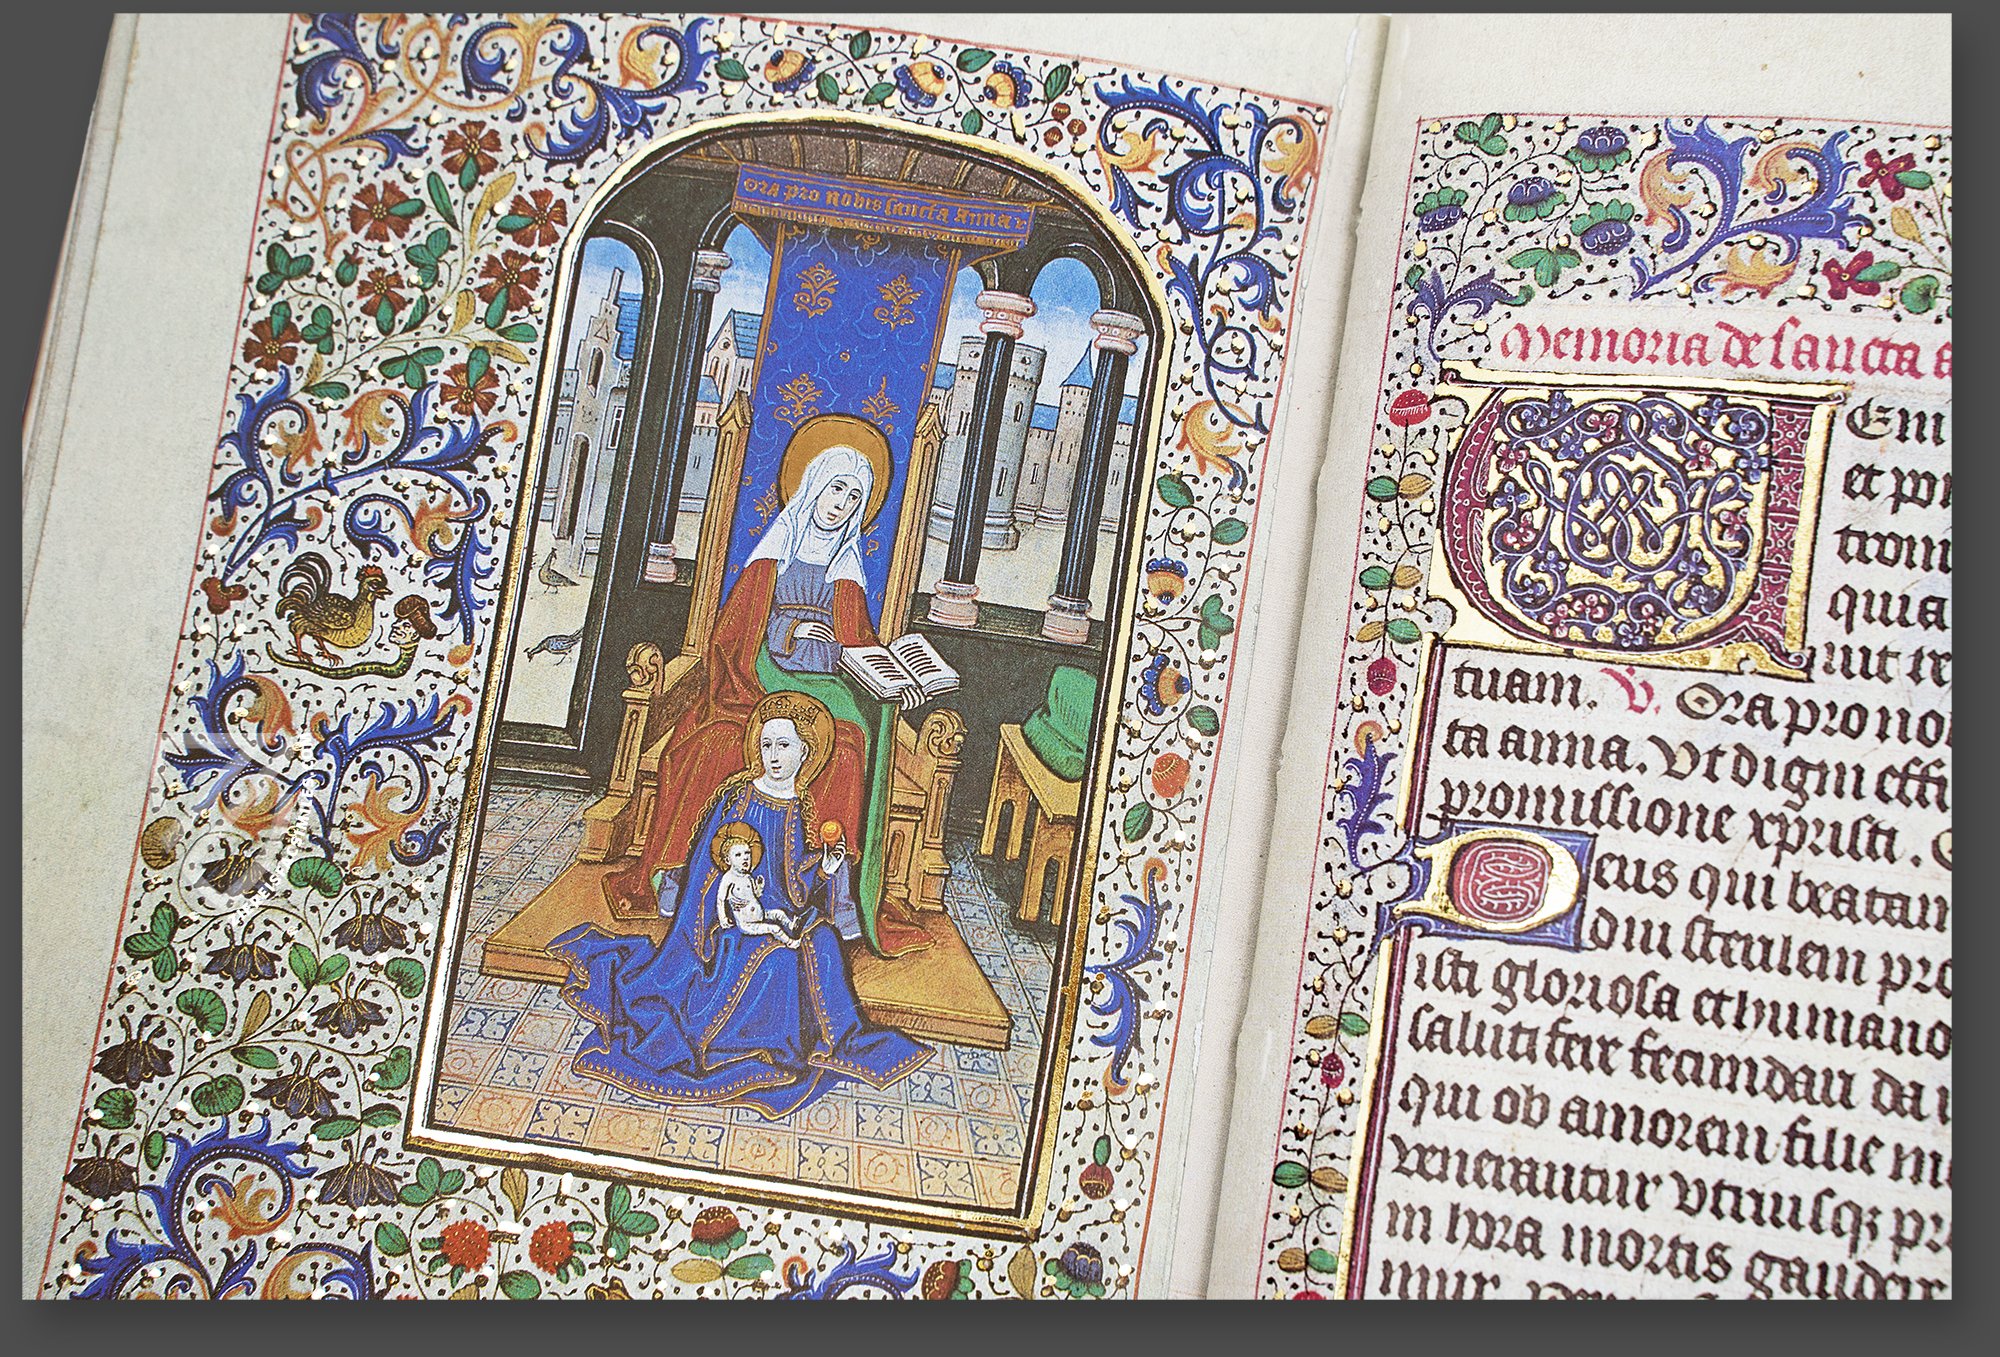 Ora pro nobis sancta Anna
Memoria de sancta a
Em
et po
tro
quia
tuam. V. Ora pro no
ta anna. Vt digni effi
promissione xpristi.
Deus qui beatam
diu sterilem pro
isti gloriosa et humano
saluti ferre fecundari da
qui ob amorem filie
venerantur vtriusq; pr
in hora mortis gaudere
mur.